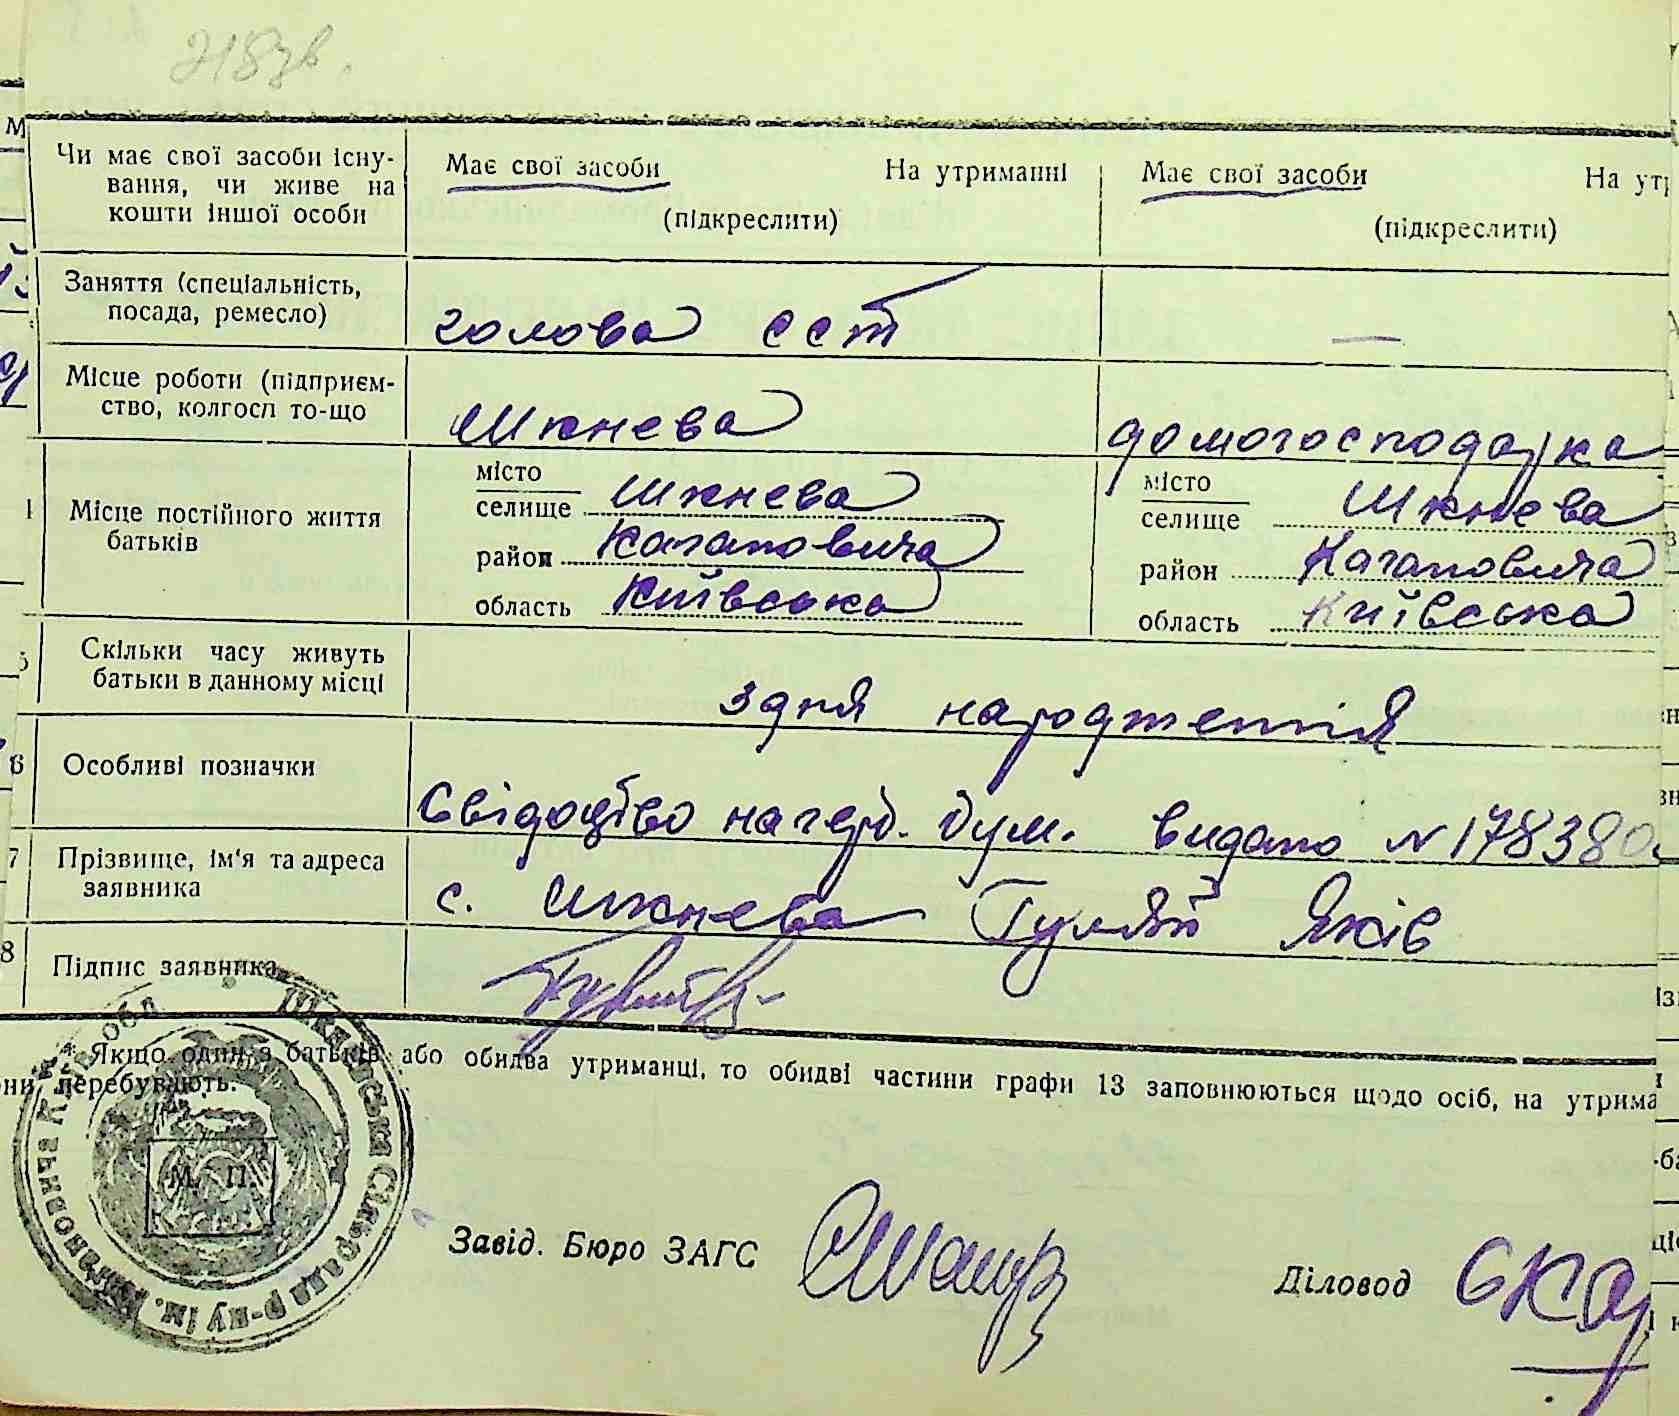 218 зв.
Чи має свої засоби існу-
вання, чи живе на
кошти іншої особи
Має свої засоби На утриманні
(підкреслити)
Має свої засоби На утр
(підкреслити)
Заняття (спеціальність,
посада, ремесло)
голова ССТ
—
Місце роботи (підприєм-
ство, колгосп то-що
Шкнева
домогосподарка
Місце постійного життя
батьків
місто
селище Шкнева
район Кагановича
область Київська
місто
селище Шкнева
район Кагановича
область Київська
Скільки часу живуть
батьки в данному місці
з дня народження
6 Особливі позначки
Свідоцтво на герб. бум. видано № 178380
7 Прізвище, ім'я та адреса
заявника
с. Шкнева Гуляй Яків
8 Підпис заявника
* Якщо один з батьків або обидва утриманці, то обидві частини графи 13 заповнюються щодо осіб, на утрима
они перебувають.
М. П.
Завід. Бюро ЗАГС
Діловод